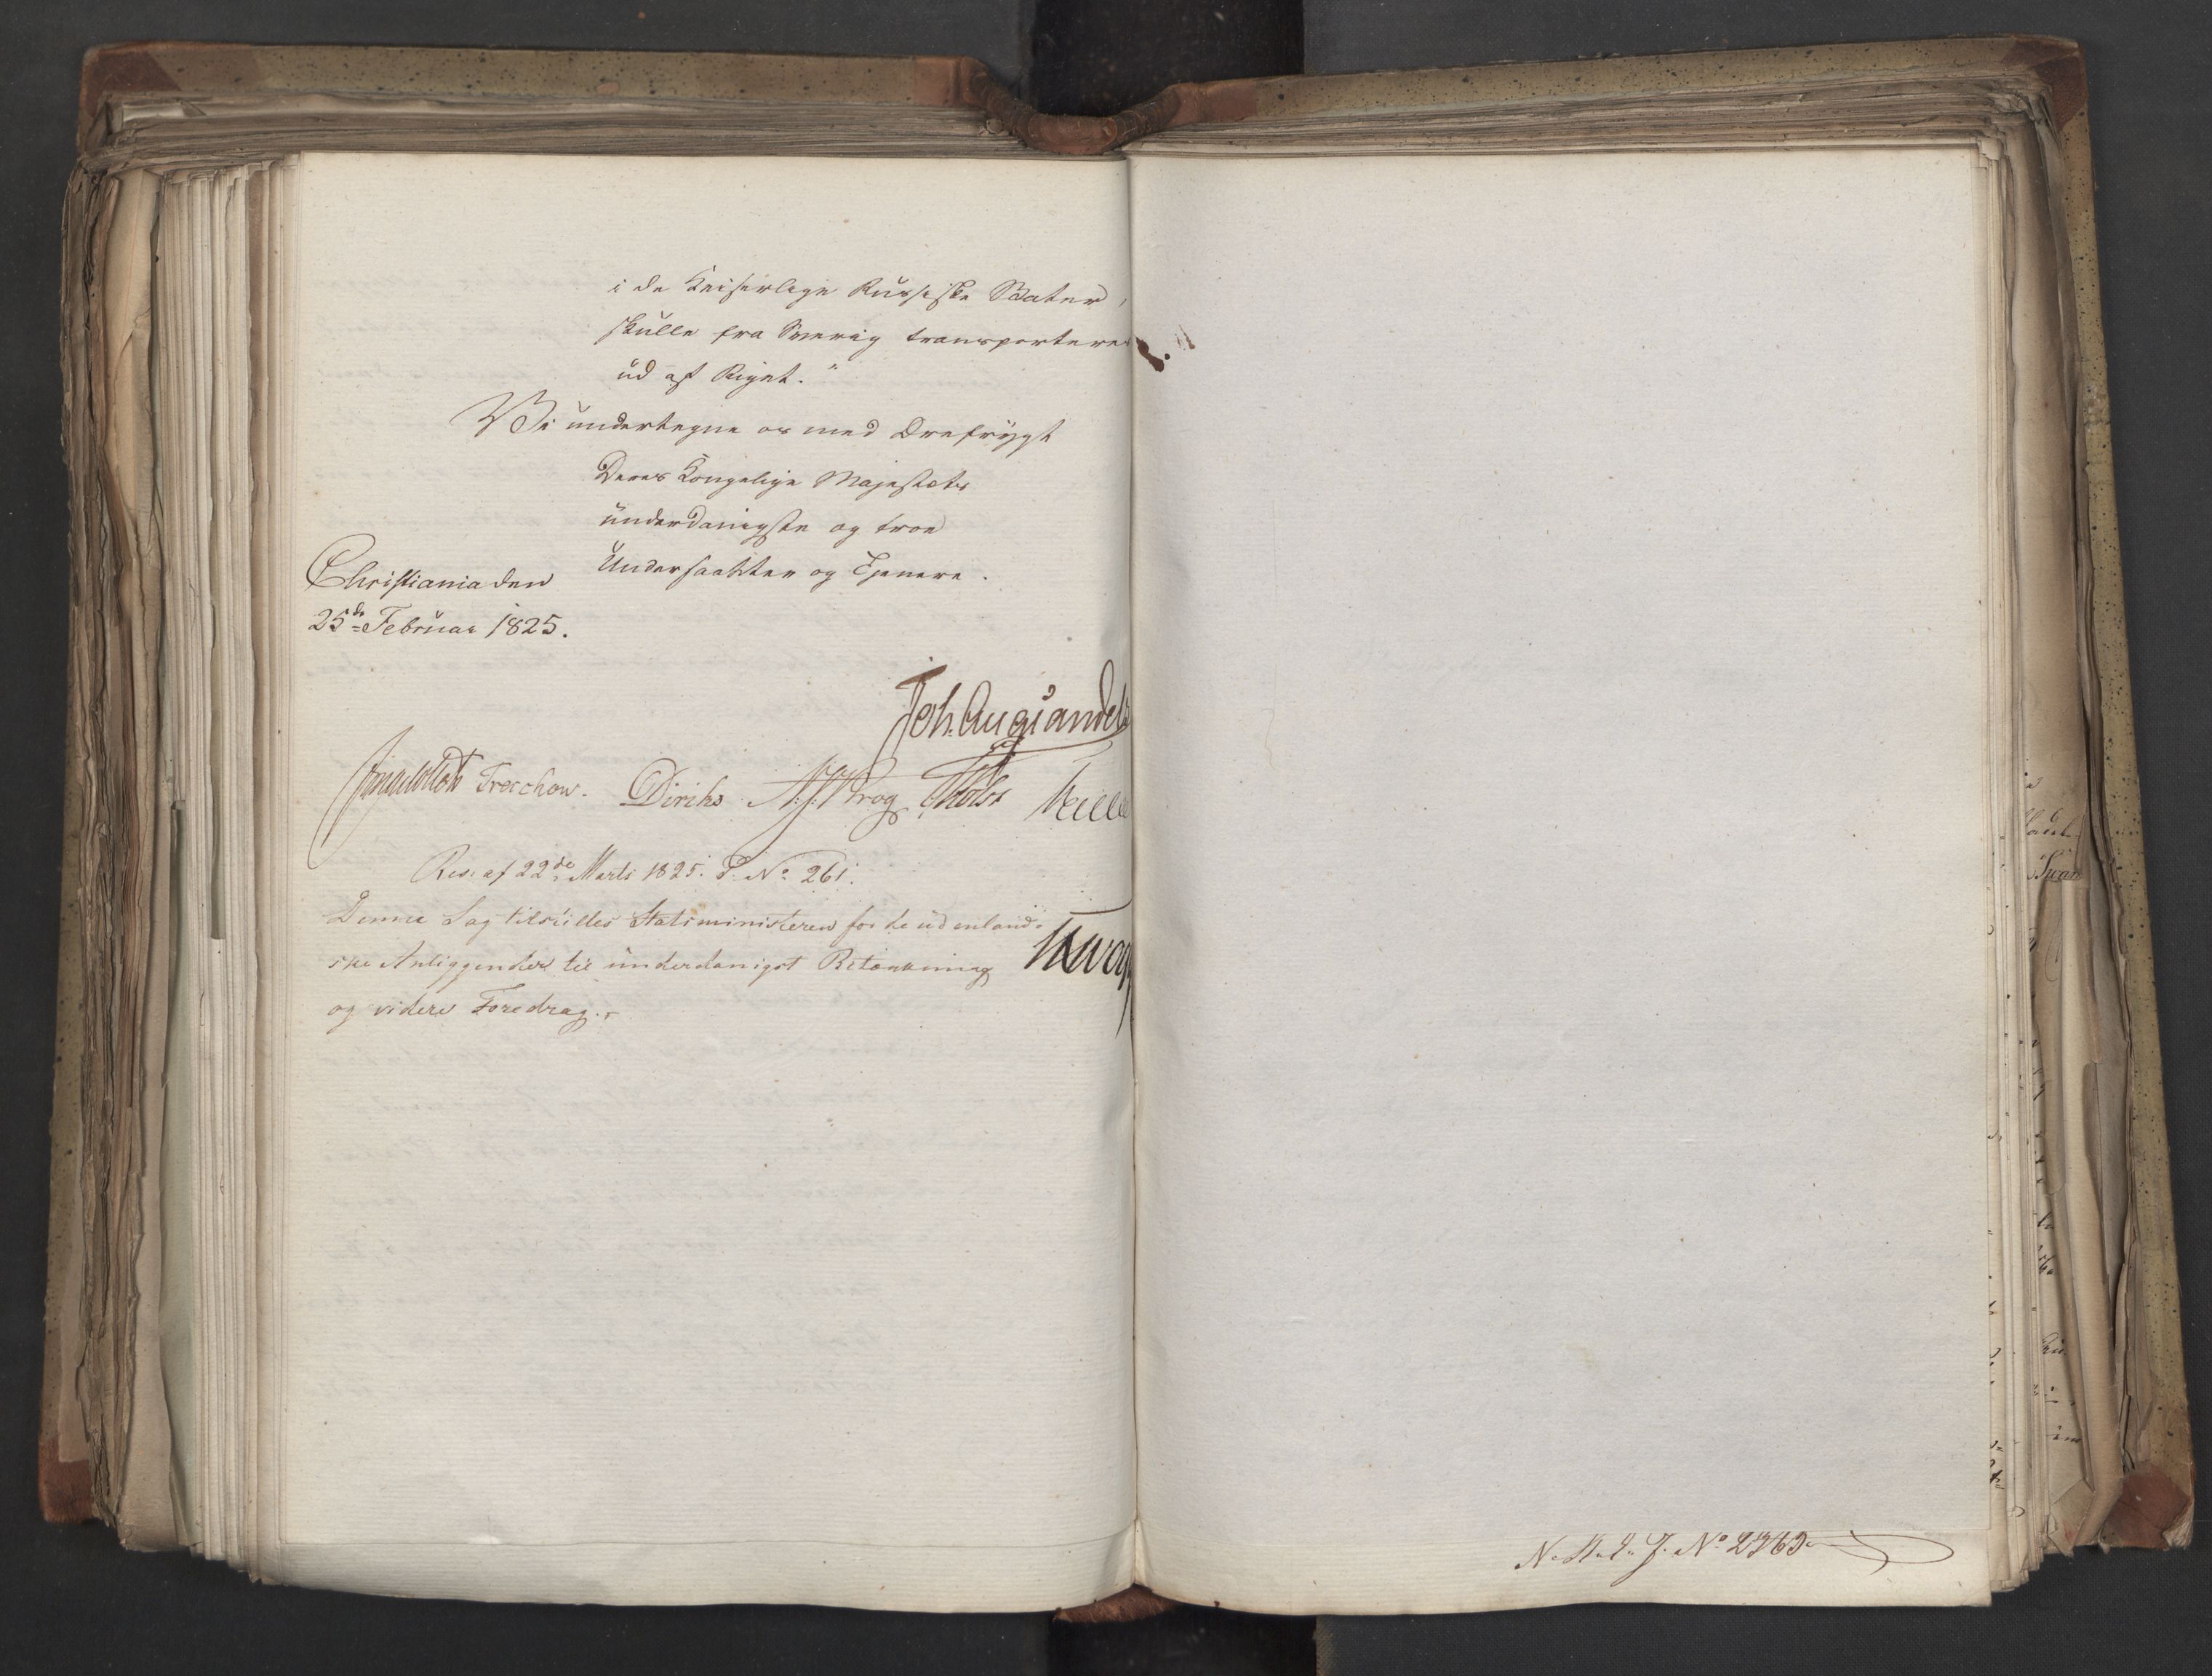 i de Keiserlige Russiske Stater,
skulle fra Sverrig transporteres
ud af Riget."
Vi undertegne os med Ærefrygt
Deres Kongelige Majestæts
underdanigste og troe
Undersaatter og Tjenere.
Christiania den
25de Februar 1825.
Joh. Aug. Sandels
Jonas Collett Treschow. Diriks. N. J. Krog Holst
Res: af 22de Marts 1825. P. No 261.
Denne Sag tilstilles Statsministeren for de udenland-
ske Anliggender til underdanigst Betænkning
og videre Foredrag.
N. St. S. J. No 2363